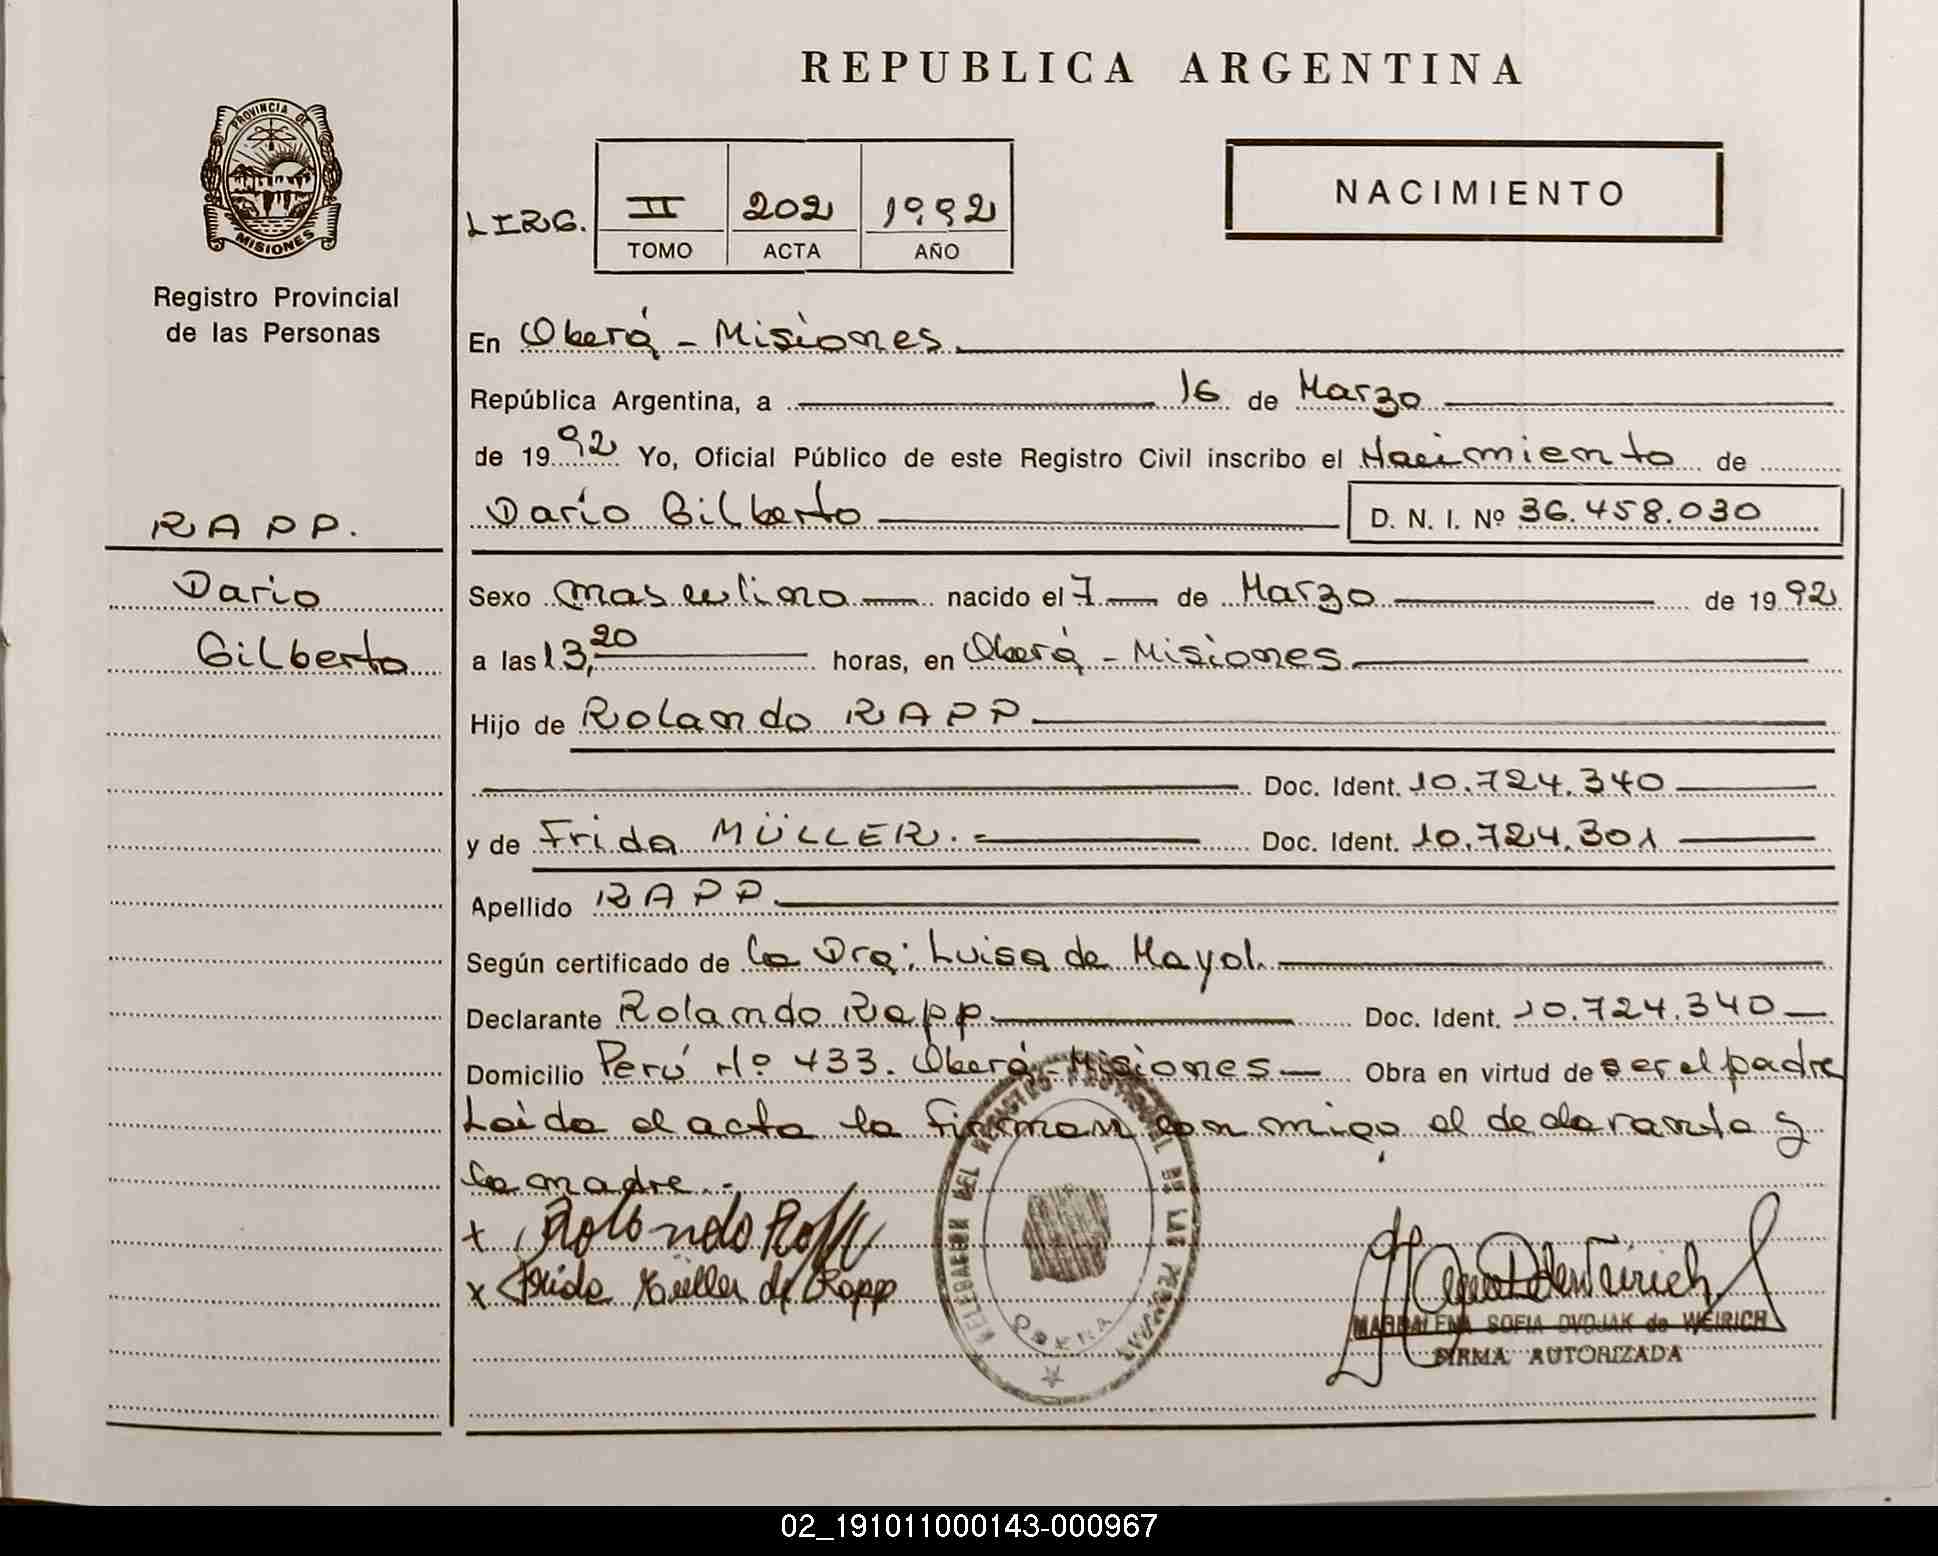 REPUBLICA ARGENTINA
PROVINCIA DE
MISIONES
Registro Provincial
de las Personas
NACIMIENTO
LIRG.
II 202 1992
TOMO ACTA AÑO
En Oberá - Misiones.
República Argentina, a 16 de Marzo
de 1992 Yo, Oficial Público de este Registro Civil inscribo el Nacimiento de
Darío Gilberto D. N. I. Nº 36.458.030
RAPP.
Dario
Gilberto
Sexo masculino nacido el 7 de Marzo de 1992
a las 13,20 horas, en Oberá - Misiones
Hijo de Rolando RAPP
Doc. Ident. 10.724.340
y de Frida MÜLLER.= Doc. Ident. 10.724.301
Apellido RAPP.
Según certificado de la Dra: Luisa de Mayol.
Declarante Rolando Rapp Doc. Ident. 10.724.340
Domicilio Perú Nº 433. Oberá - Misiones Obra en virtud de ser el padre
Leida el acta la firman con migo el declarante y
la madre.-
x Rolando Rapp
x Frida Müller de Rapp
DEL REGISTRO PROVINCIAL DE LAS PERSONAS
OBERA
MAGDALENA SOFIA DVOJAK de WEIRICH
FIRMA AUTORIZADA
02_191011000143-000967